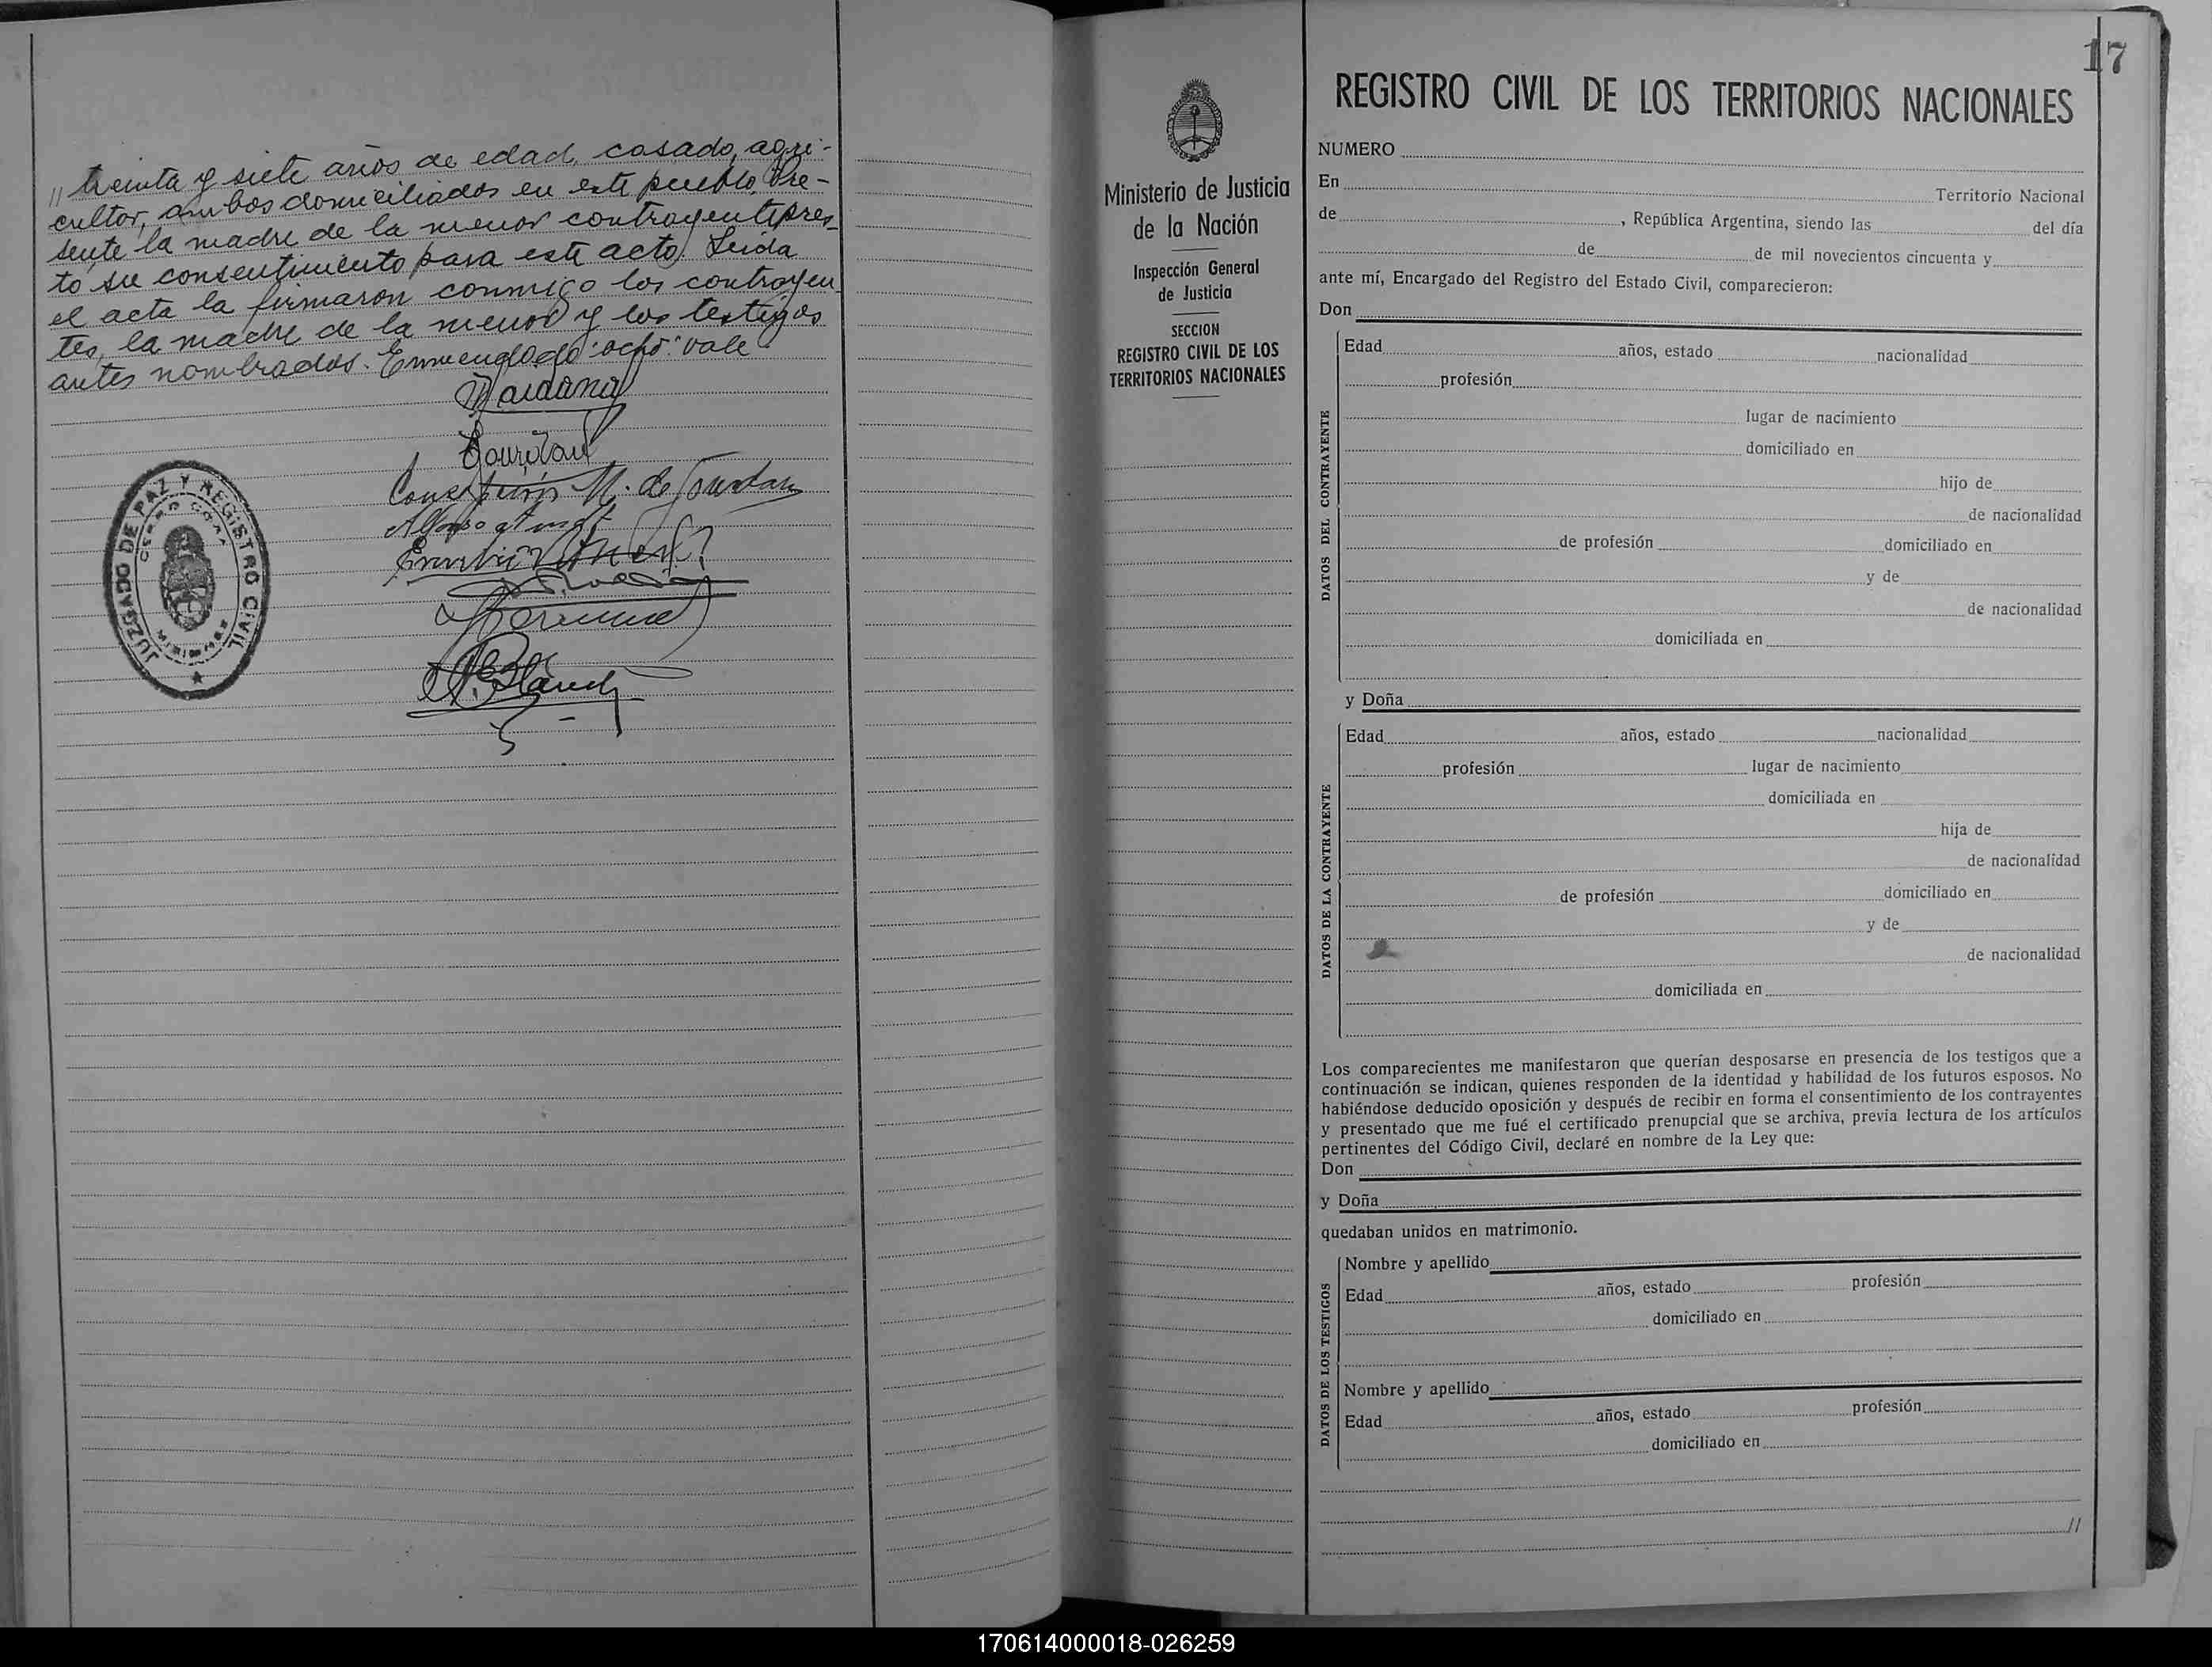 // treinta y siete años de edad, casado, agri-
cultor, ambos domiciliados en este pueblo. Pre-
sente la madre de la menor contrayente pres-
tó su consentimiento para este acto. Leida
el acta la firmaron conmigo los contrayen-
tes, la madre de la menor y los testigos
antes nombrados. Enmendado: ocho: vale
JUZGADO DE PAZ Y REGISTRO CIVIL
CERRO CORA
MISIONES
17
Ministerio de Justicia
de la Nación
Inspección General
de Justicia
SECCION
REGISTRO CIVIL DE LOS
TERRITORIOS NACIONALES
REGISTRO CIVIL DE LOS TERRITORIOS NACIONALES
NUMERO
En Territorio Nacional
de , República Argentina, siendo las del día
de de mil novecientos cincuenta y
ante mí, Encargado del Registro del Estado Civil, comparecieron:
Don
DATOS DEL CONTRAYENTE
Edad años, estado nacionalidad
profesión
lugar de nacimiento
domiciliado en
hijo de
de nacionalidad
de profesión domiciliado en
y de
de nacionalidad
domiciliada en
y Doña
DATOS DE LA CONTRAYENTE
Edad años, estado nacionalidad
profesión lugar de nacimiento
domiciliada en
hija de
de nacionalidad
de profesión domiciliado en
y de
de nacionalidad
domiciliada en
Los comparecientes me manifestaron que querían desposarse en presencia de los testigos que a
continuación se indican, quienes responden de la identidad y habilidad de los futuros esposos. No
habiéndose deducido oposición y después de recibir en forma el consentimiento de los contrayentes
y presentado que me fué el certificado prenupcial que se archiva, previa lectura de los artículos
pertinentes del Código Civil, declaré en nombre de la Ley que:
Don
y Doña
quedaban unidos en matrimonio.
DATOS DE LOS TESTIGOS
Nombre y apellido
Edad años, estado profesión
domiciliado en
Nombre y apellido
Edad años, estado profesión
domiciliado en
//
170614000018-026259